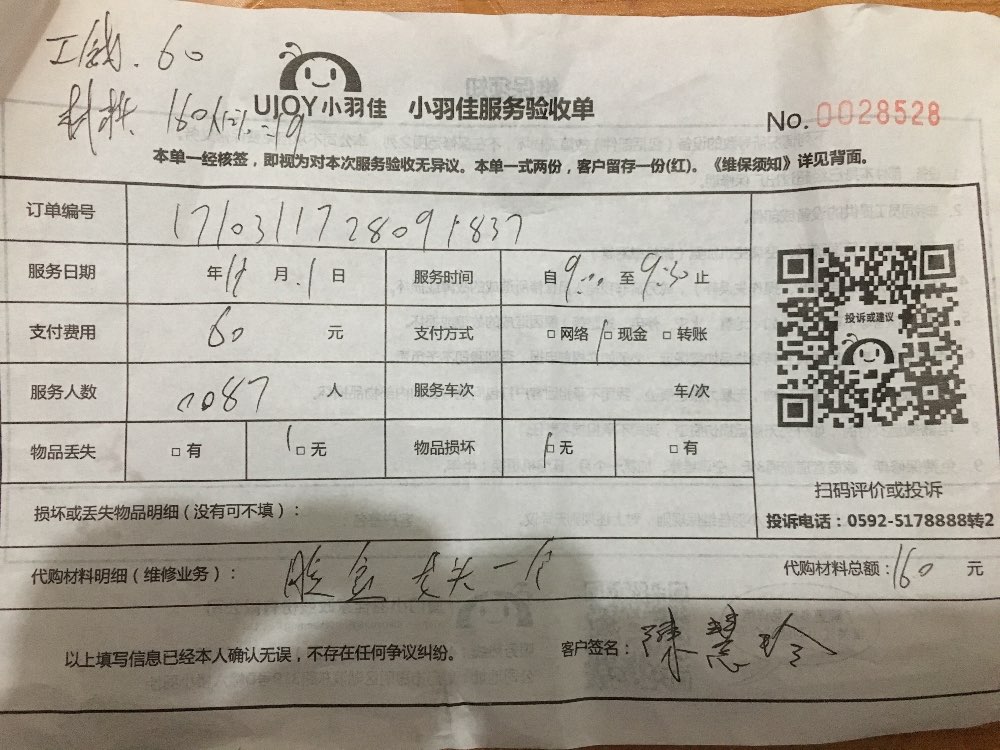 工钱.60
材料 160×12%=19
UJOY小羽佳 小羽佳服务验收单
No. 0028528
本单一经核签，即视为对本次服务验收无异议。本单一式两份，客户留存一份(红)。《维保须知》详见背面。
订单编号 1710311728091837
服务日期 年 11 月 1 日 服务时间 自 9:00 至 9:30 止
支付费用 60 元 支付方式 □网络 □现金 □转账
服务人数 0087 人 服务车次 车/次
物品丢失 □有 □无 物品损坏 □无 □有
投诉或建议
扫码评价或投诉
投诉电话：0592-5178888转2
损坏或丢失物品明细（没有可不填）：
代购材料明细（维修业务）： 一个 代购材料总额：160 元
以上填写信息已经本人确认无误，不存在任何争议纠纷。 客户签名：陈慧玲